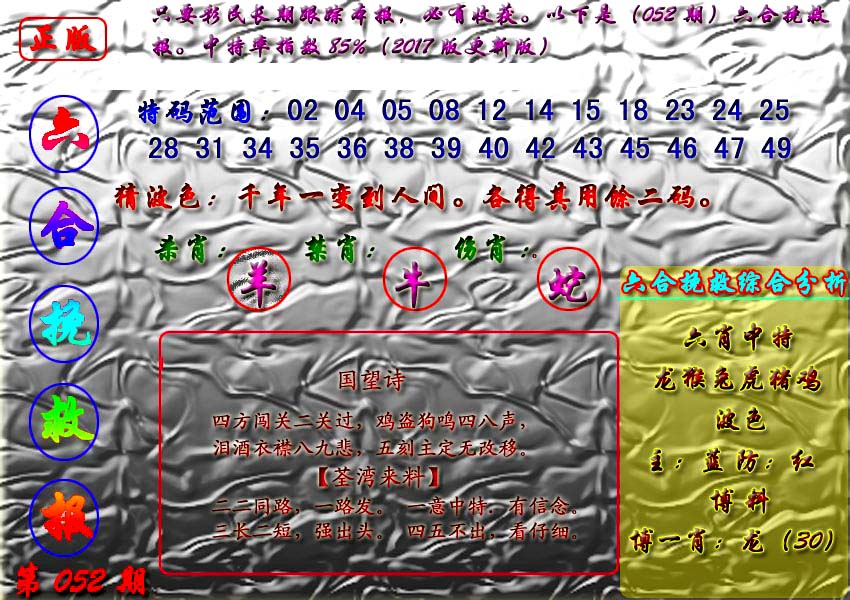 正版
只要彩民长期跟踪本报，必有收获。以下是（052期）六合挽救
报。中特率指数85%（2017版更新版）
六合挽救报
第052期
特码范围：02 04 05 08 12 14 15 18 23 24 25
28 31 34 35 36 38 39 40 42 43 45 46 47 49
猜波色：千年一变到人间。各得其用馀二码。
杀肖：羊 禁肖：牛 伤肖：蛇。
国望诗
四方闯关二关过，鸡盗狗鸣四八声，
泪酒衣襟八九悲，五刻主定无改移。
【荃湾来料】
二二同路，一路发。 一意中特．有信念。
三长二短，强出头。 四五不出，看仔细。
六合挽救综合分析
六肖中特
龙猴兔虎猪鸡
波色
主：蓝防：红
博料
博一肖：龙（30）